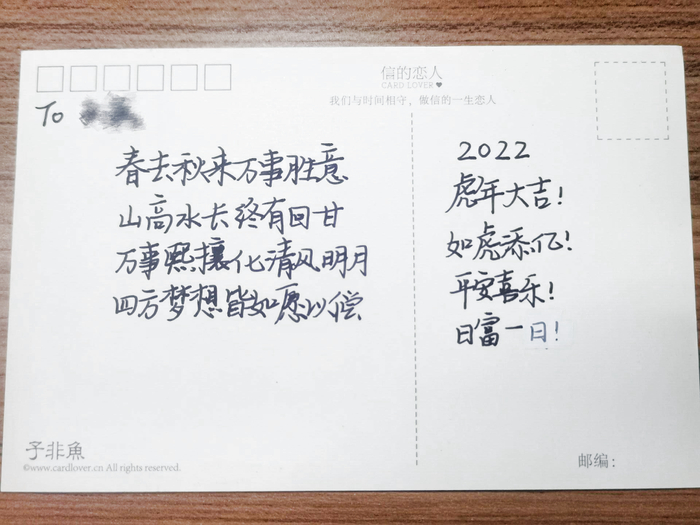 信的恋人
CARD LOVER
我们与时间相守，做信的一生恋人
To
春去秋来万事胜意
山高水长终有回甘
万事熙攘化清风明月
四方梦想皆如愿以偿
2022
虎年大吉！
如虎添亿！
平安喜乐！
日富一日！
子非魚
©www.cardlover.cn All rights reserved.
邮编：